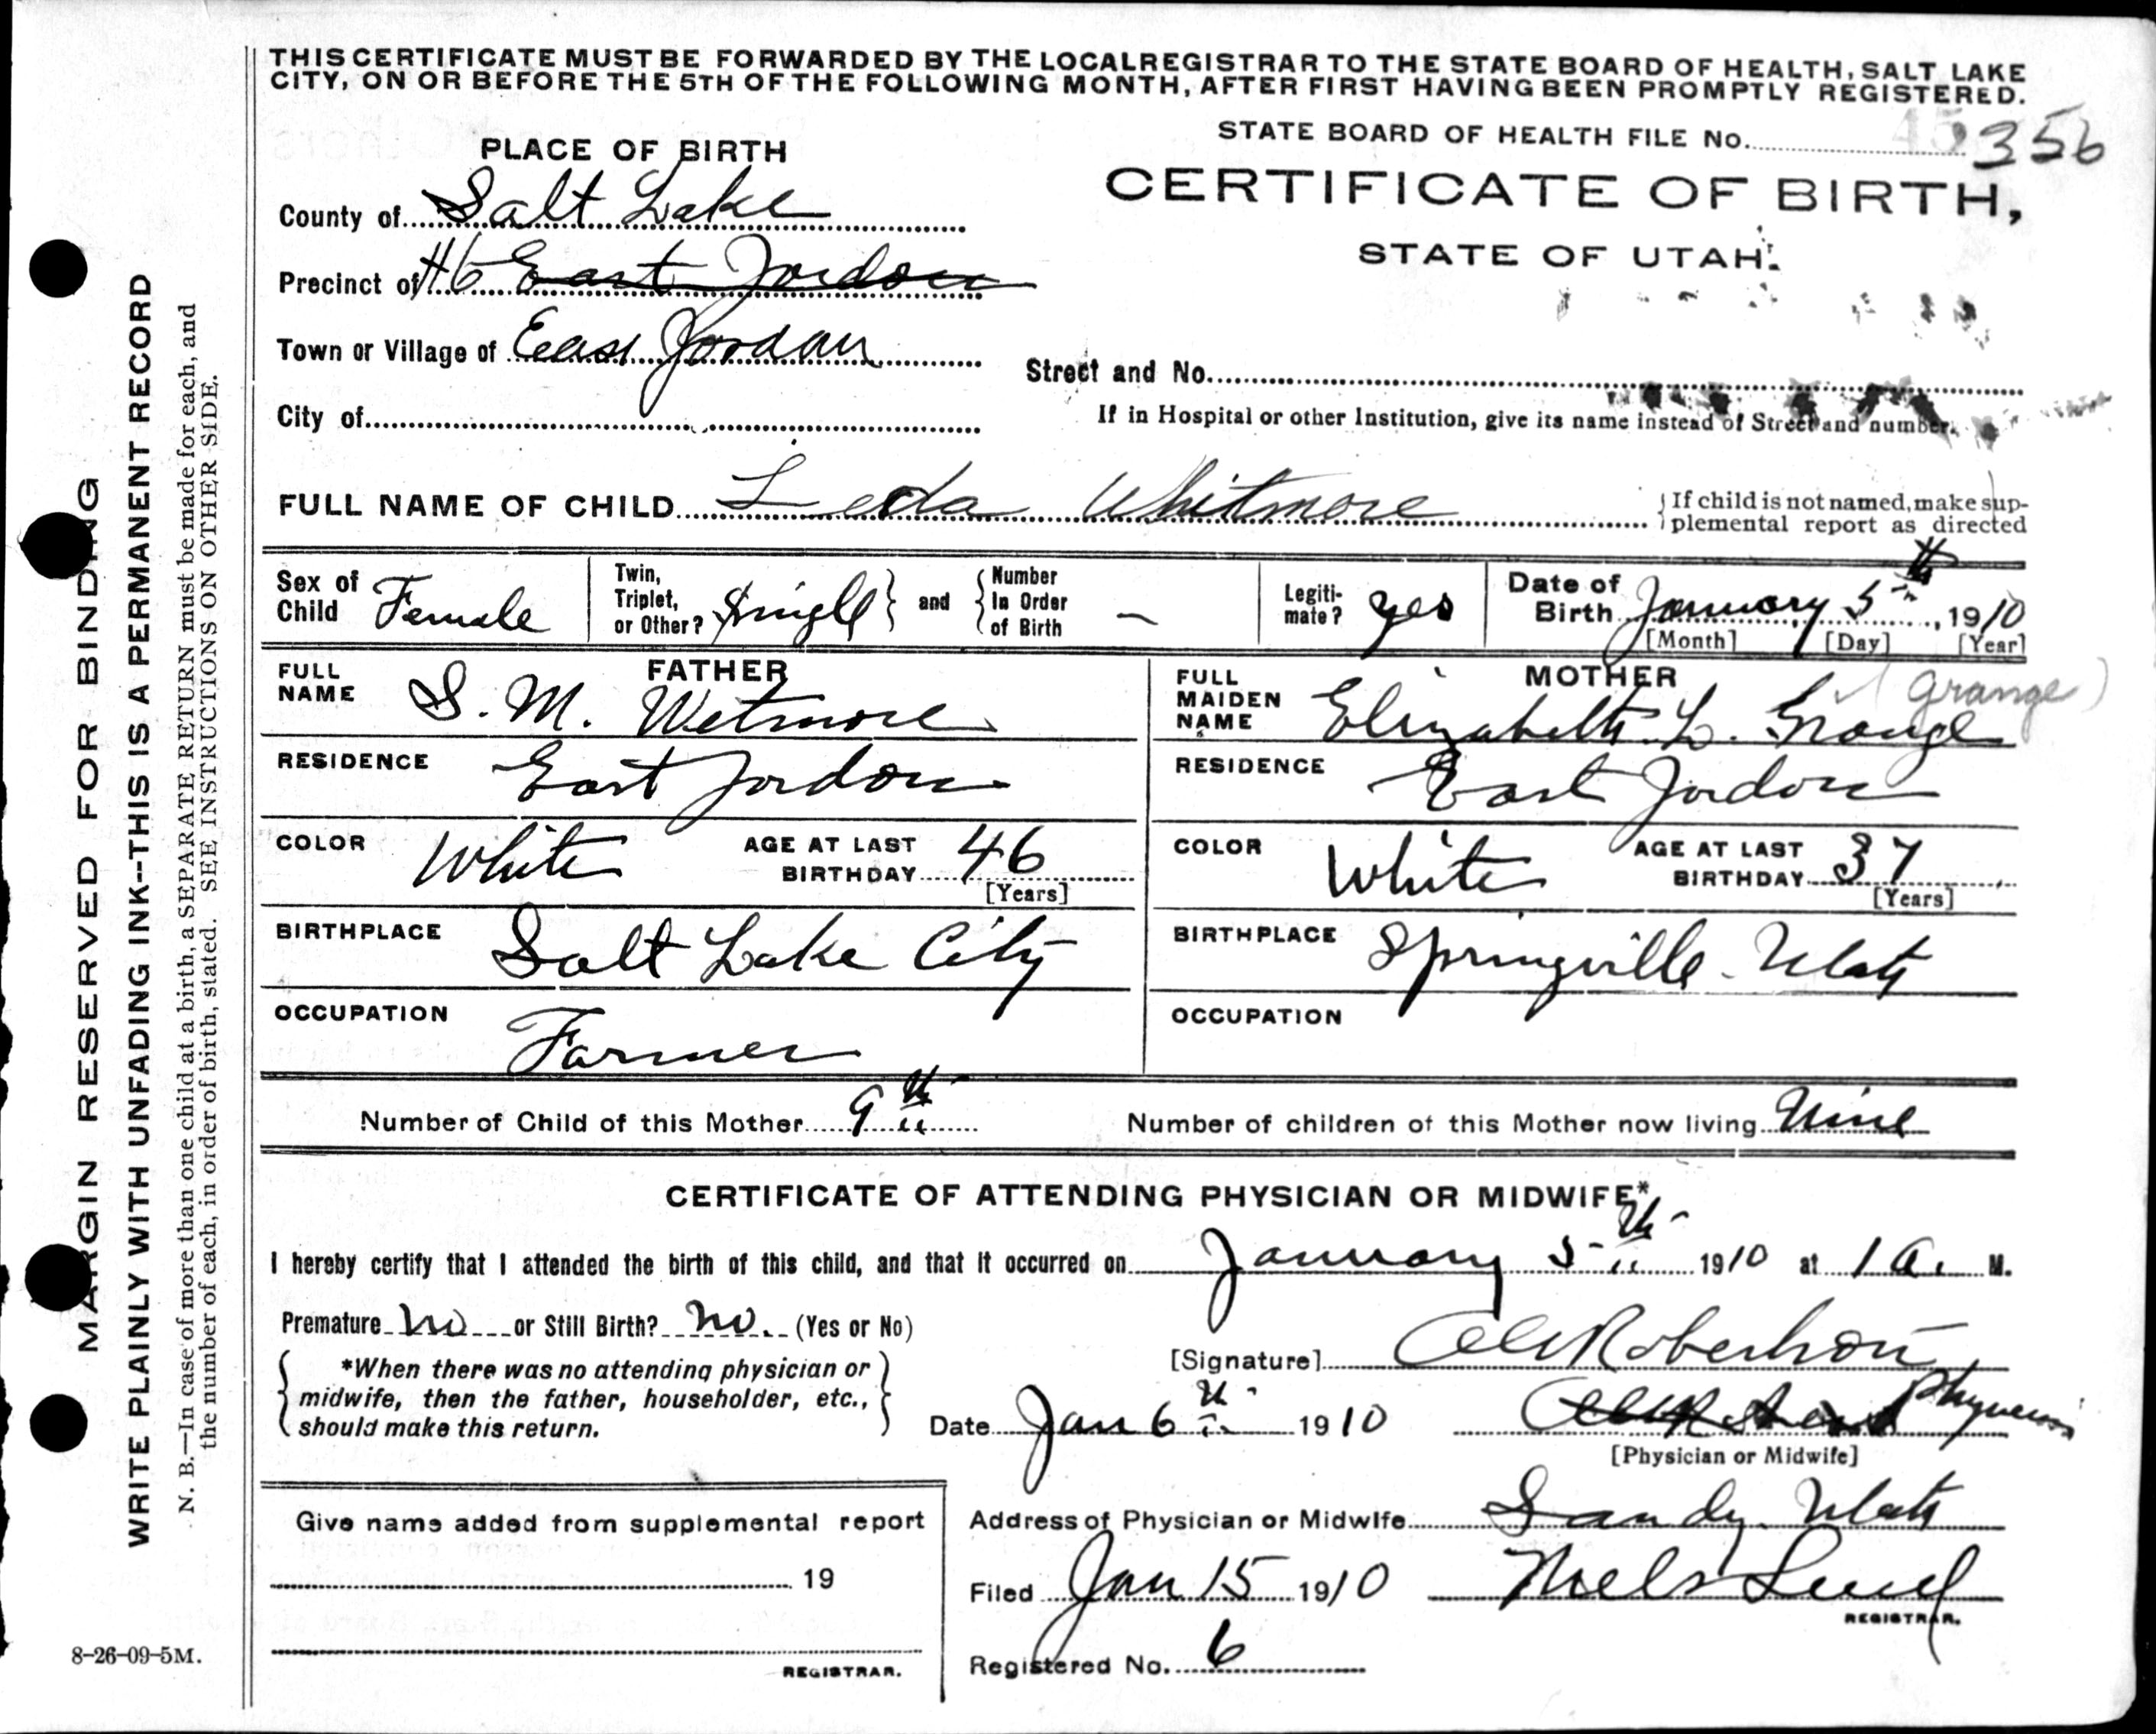 THIS CERTIFICATE MUST BE FORWARDED BY THE LOCALREGISTRAR TO THE STATE BOARD OF HEALTH, SALT LAKE
CITY, ON OR BEFORE THE 5TH OF THE FOLLOWING MONTH, AFTER FIRST HAVING BEEN PROMPTLY REGISTERED.
STATE BOARD OF HEALTH FILE No. 356
PLACE OF BIRTH
CERTIFICATE OF BIRTH,
STATE OF UTAH.
County of Salt Lake
Precinct of #6 East Jordon
Town or Village of East Jordan
Street and No.
City of
If in Hospital or other Institution, give its name instead of Street and number.
FULL NAME OF CHILD Leda Whitmore
If child is not named, make sup-
plemental report as directed
Sex of Child Female
Twin, Triplet, or Other? Single and Number In Order of Birth —
Legiti-mate? yes
Date of Birth January 5th, 1910
[Month] [Day] [Year]
FATHER
FULL NAME S. M. Wetmore
RESIDENCE East Jordon
COLOR White AGE AT LAST BIRTHDAY 46
[Years]
BIRTHPLACE Salt Lake City
OCCUPATION Farmer
MOTHER
(Grange)
FULL MAIDEN NAME Elizabeth L. Grange
RESIDENCE East Jordon
COLOR White AGE AT LAST BIRTHDAY 37
[Years]
BIRTHPLACE Springville Utah
OCCUPATION
Number of Child of this Mother 9th Number of children of this Mother now living Nine
CERTIFICATE OF ATTENDING PHYSICIAN OR MIDWIFE*
I hereby certify that I attended the birth of this child, and that it occurred on January 5th 1910 at 1 a. M.
Premature no or Still Birth? no. (Yes or No)
*When there was no attending physician or
midwife, then the father, householder, etc.,
should make this return.
[Signature] Robertson
Date Jan 6th 1910 Physician
[Physician or Midwife]
Address of Physician or Midwife Sandy Utah
Filed Jan 15 1910 Niels Lind
REGISTRAR.
Registered No. 6
Give name added from supplemental report
19
REGISTRAR.
8-26-09-5M.
MARGIN RESERVED FOR BINDING
WRITE PLAINLY WITH UNFADING INK--THIS IS A PERMANENT RECORD
N. B.—In case of more than one child at a birth, a SEPARATE RETURN must be made for each, and
the number of each, in order of birth, stated. SEE INSTRUCTIONS ON OTHER SIDE.